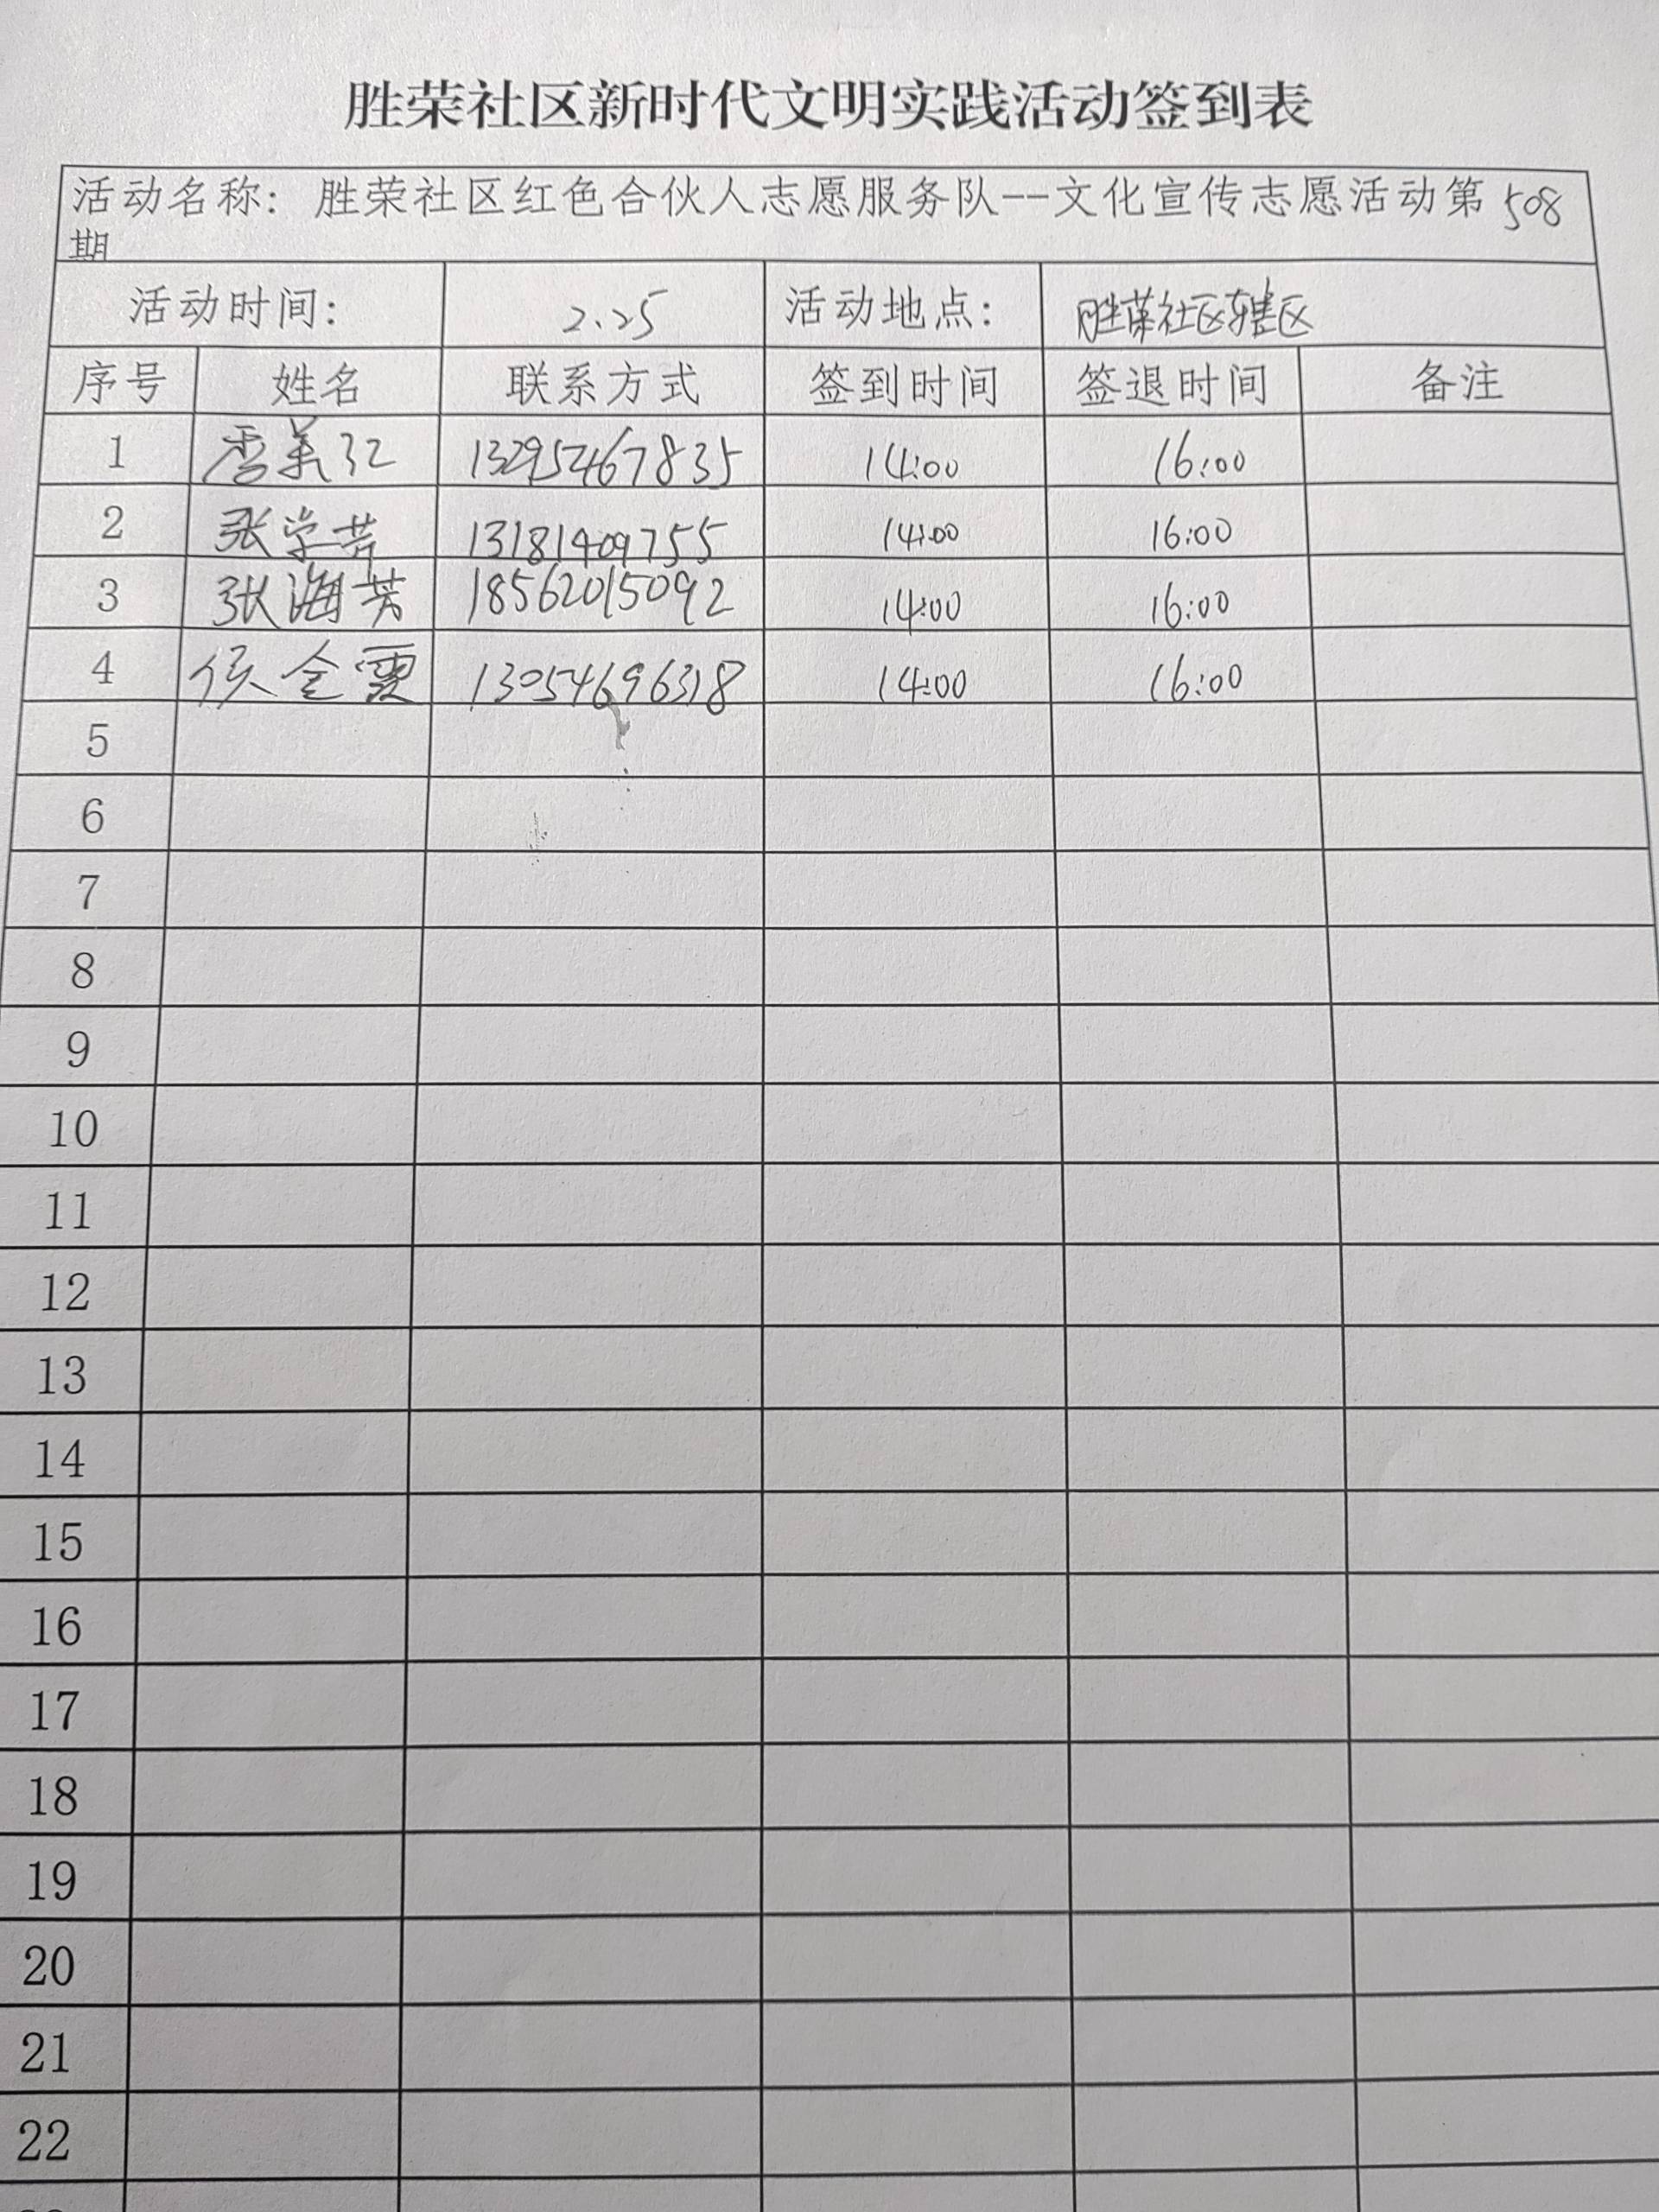 胜荣社区新时代文明实践活动签到表
活动名称：胜荣社区红色合伙人志愿服务队--文化宣传志愿活动第508
期
活动时间： 2.25 活动地点： 胜荣社区辖区
序号 姓名 联系方式 签到时间 签退时间 备注
1 李美江 13295467835 14:00 16:00
2 张学芳 13181409755 14:00 16:00
3 张海芳 18562015092 14:00 16:00
4 侯金霞 13054696318 14:00 16:00
5
6
7
8
9
10
11
12
13
14
15
16
17
18
19
20
21
22